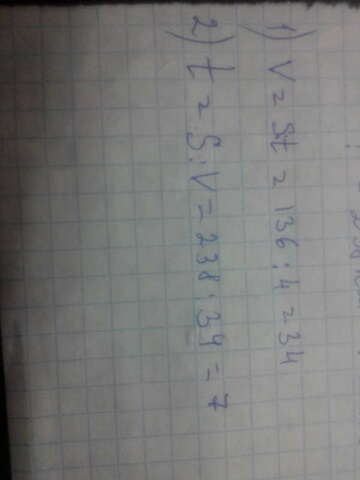 1) V = St = 136 : 4 = 34
2) t = S : V = 238 : 34 = 7